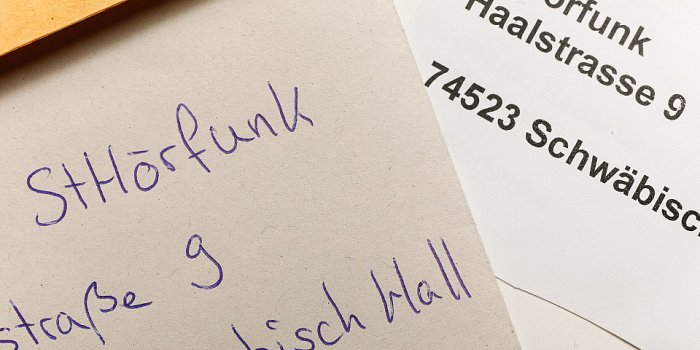 StHörfunk
9
straße
bisch Hall
örfunk
Haalstrasse 9
74523 Schwäbisc